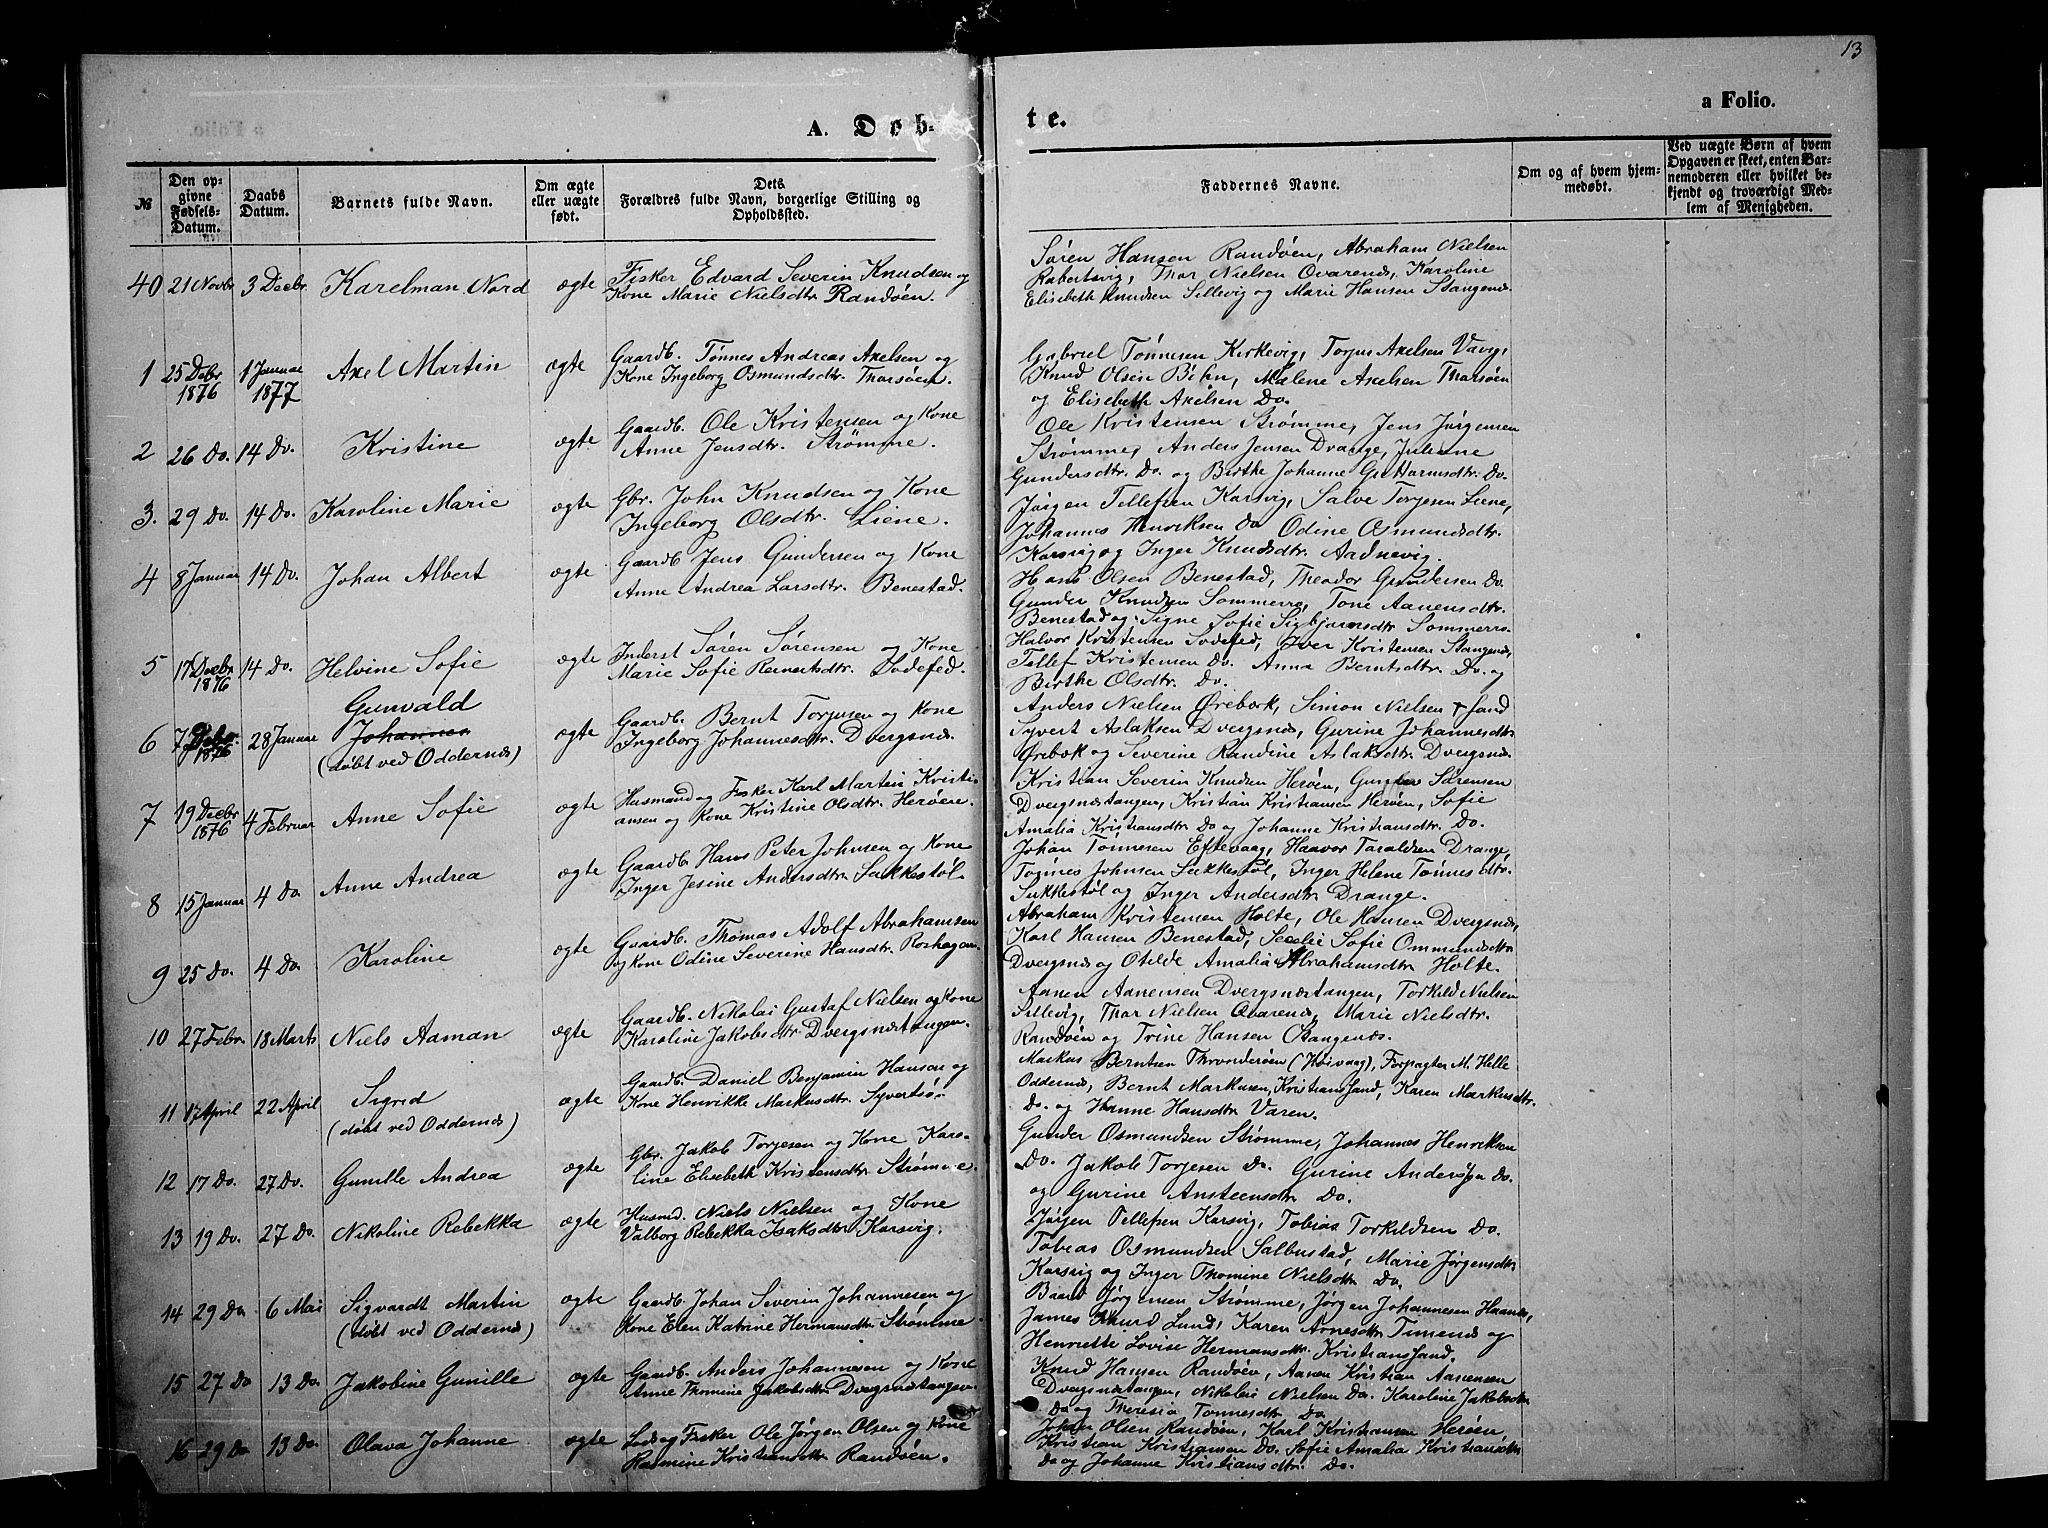 13
A. Døb-
te.
a Folio.
№
Den op-
givne
Fødsels-
Datum.
Daabs
Datum.
Barnets fulde Navn.
Om ægte
eller uægte
født.
Dets
Forældres fulde Navn, borgerlige Stilling og
Opholdssted.
Faddernes Navne.
Om og af hvem hjem-
medøbt.
Ved uægte Børn af hvem
Opgaven er skeet, enten Bar-
nemoderen eller hvilket be-
kjendt og troværdigt Med-
lem af Menigheden.
40 21 Novbr 3 Decbr. Karelman Nord ægte
Fisker Edvard Severin Knudsen og
Kone Marie Nielsdtr. Randøen.
Søren Hansen Randøen, Abraham Nielsen
Rabertsvig, Thor Nielsen Qvarenes, Karoline
Elisebeth Knudsen Sillevig og Marie Hansen Stangenæs.
1 25 Debr 1876 1 Januar 1877 Axel Martin ægte
Gaardb. Tønnes Andreas Axelsen og
Kone Ingeborg Osmundsdtr. Tharsøen.
Gabriel Tønnesen Kirkevig, Torjus Axelsen Vavig,
Knud Olsen Bihn, Malene Axelsen Tharsøen
og Elisebeth Axelsen Do.
2 26 Do. 14 Do. Kristine ægte
Gaardb. Ole Kristensen og Kone
Anne Jensdtr. Strømme.
Ole Kristensen Strømme, Jens Jørgensen
Strømme, Anders Jensen Drange, Juliane
Gundersdtr. Do. og Birthe Johanne Guttormsdtr. Do.
3. 29 Do. 14 Do. Karoline Marie ægte
Gbr. John Knudsen og Kone
Ingeborg Olsdtr. Liene.
Jørgen Tellefsen Karsvig, Salve Torjesen Liene,
Johannes Henriksen Do Odine Osmundsdtr.
Karsvig og Inger Knudsdtr. Aadnevig.
4 8 Januar 14 Do. Johan Albert ægte
Gaardb Jens Gundersen og Kone
Anne Andrea Larsdtr. Benestad.
Hans Olsen Benestad, Theodor Gundersen Do.
Gunder Knudsen Sommerro, Tone Aanensdtr.
Benestad og Signe Sofie Sigbjørnsdtr Sommerro.
5 17 Decbr 1876 14 Do. Helvine Sofie ægte
Inderst Søren Sørensen og Kone
Marie Sofie Reinertsdtr. Sodefed.
Halvor Kristensen Sodefed, Iver Kristensen Stangenæs,
Tellef Kristensen Do. Anna Berntsdtr. Do. og
Birthe Olsdtr. Do.
6 7 Debr. 1876 28 Januar
Gunvald
Johannes
(døbt ved Oddernæs) ægte
Gaardb. Bernt Torjusen og Kone
Ingeborg Johannesdtr. Dvergsnæs.
Anders Nielsen Ørebæk, Simon Nielsen
Syvert Aslaksen Dvergsnæs, Gurine Johannesdtr
Ørebæk og Severine Randine Aslaksdtr. Dvergsnæs
7 19 Decbr 1876 4 Februar Anne Sofie ægte
Husmand og Fisker Karl Martin Kristi-
ansen og Kone Kristine Olsdtr. Herøen.
Kristian Severin Knudsen Herøen, Gunder Sørensen
Dvergsnæstangen, Kristian Kristiansen Herøen, Sofie
Amalia Kristiansdtr Do og Johanne Kristiansdtr. Do.
8 15 Januar 4 Do Anne Andrea ægte
Gaardb. Hans Peter Johnsen og Kone
Inger Jesine Andersdtr. Sukkestøl.
Johan Tønnesen Eftevaag, Haavor Taraldsen Drange,
Tønnes Johnsen Sukkestøl, Inger Helene Tønnesdtr.
Sukkestøl og Inger Andersdtr Drange.
9 25 Do. 4 Do Karoline ægte
Gaardb. Thomas Adolf Abrahamsen
og Kone Odine Severine Hansdtr. Roshagen.
Abraham Kristensen Holte, Ole Hansen Dvergsnæs,
Karl Hansen Benestad, Secelie Sofie Ommundsdtr
Dvergsnæs og Otelde Amalia Abrahamsdtr Holte.
10 27 Febr. 18 Marts Niels Aaman ægte
Gaardb. Nikolai Gustaf Nielsen og Kone
Karoline Jakobsdtr. Dvergsnæstangen.
Aanen Aanensen Dvergsnæstangen, Torkild Nielsen
Sillevig, Thor Nielsen Qvarenæs, Marie Nielsdtr.
Randøen og Trine Hansen Stangenæs.
11 17 April 22 April Sigrid
(døbt ved Oddernæs) ægte
Gaardb. Daniel Benjamin Hansen og
Kone Henrikke Markusdtr. Syvertsø.
Markus Berntsen Throndersøen (Høivaag), Forpagter M. Helle
Oddernæs, Bernt Markusen, Kristianssand, Karen Markusdtr.
Do. og Hanne Hansdtr Varen.
12 17 Do. 27 Do. Gunille Andrea ægte
Gbr. Jakob Torjesen og Kone Karo-
line Elisebeth Kristensdtr Strømme.
Gunder Osmundsen Strømme, Johannes Henriksen
Do. Jakob Torjesen Do. Gurine Andersdtr Do.
og Gurine Ansteensdtr Do.
13 19 Do. 27 Do. Nikoline Rebekka ægte
Husmd. Niels Nielsen og Kone
Valborg Rebekka Isaksdtr. Karsvig.
Jørgen Tellefsen Karsvig, Tobias Torkildsen Do.
Tobias Osmundsen Salbustad, Marie Jørgensdtr
Karsvig og Inger Thomine Nielsdtr Do.
14 29 Do 6 Mai Sigvardt Martin
(døbt ved Oddernæs) ægte
Gaardb. Johan Severin Johannesen og
Kone Elen Katrine Hermansdtr Strømme.
Baard Jørgensen Strømme, Jørgen Johannesen Haanes,
James Lund, Karen Arnesdtr Timenes og
Henriette Lovise Hermansdtr. Kristianssand.
15 27 Do 13 Do. Jakobine Gunille ægte
Gaardb. Anders Johannesen og Kone
Anne Thomine Jakobsdtr Dvergsnæstangen
Knud Hansen Randøen, Aanen Kristian Aanensen
Dvergsnæstangen, Nikolai Nielsen Do. Karoline Jakobsdtr
Do og Theresia Tønnesdtr Do
16 29 Do 13 Do Olava Johanne ægte
Lods og Fisker Ole Jørgen Olsen og Kone
Rasmine Kristiansdtr Randøen.
Johan Olsen Randøen, Karl Kristiansen Herøen,
Kristian Kristiansen Do. Sofie Amalia Kristiansdtr
Do og Johanne Kristiansdtr. Do.